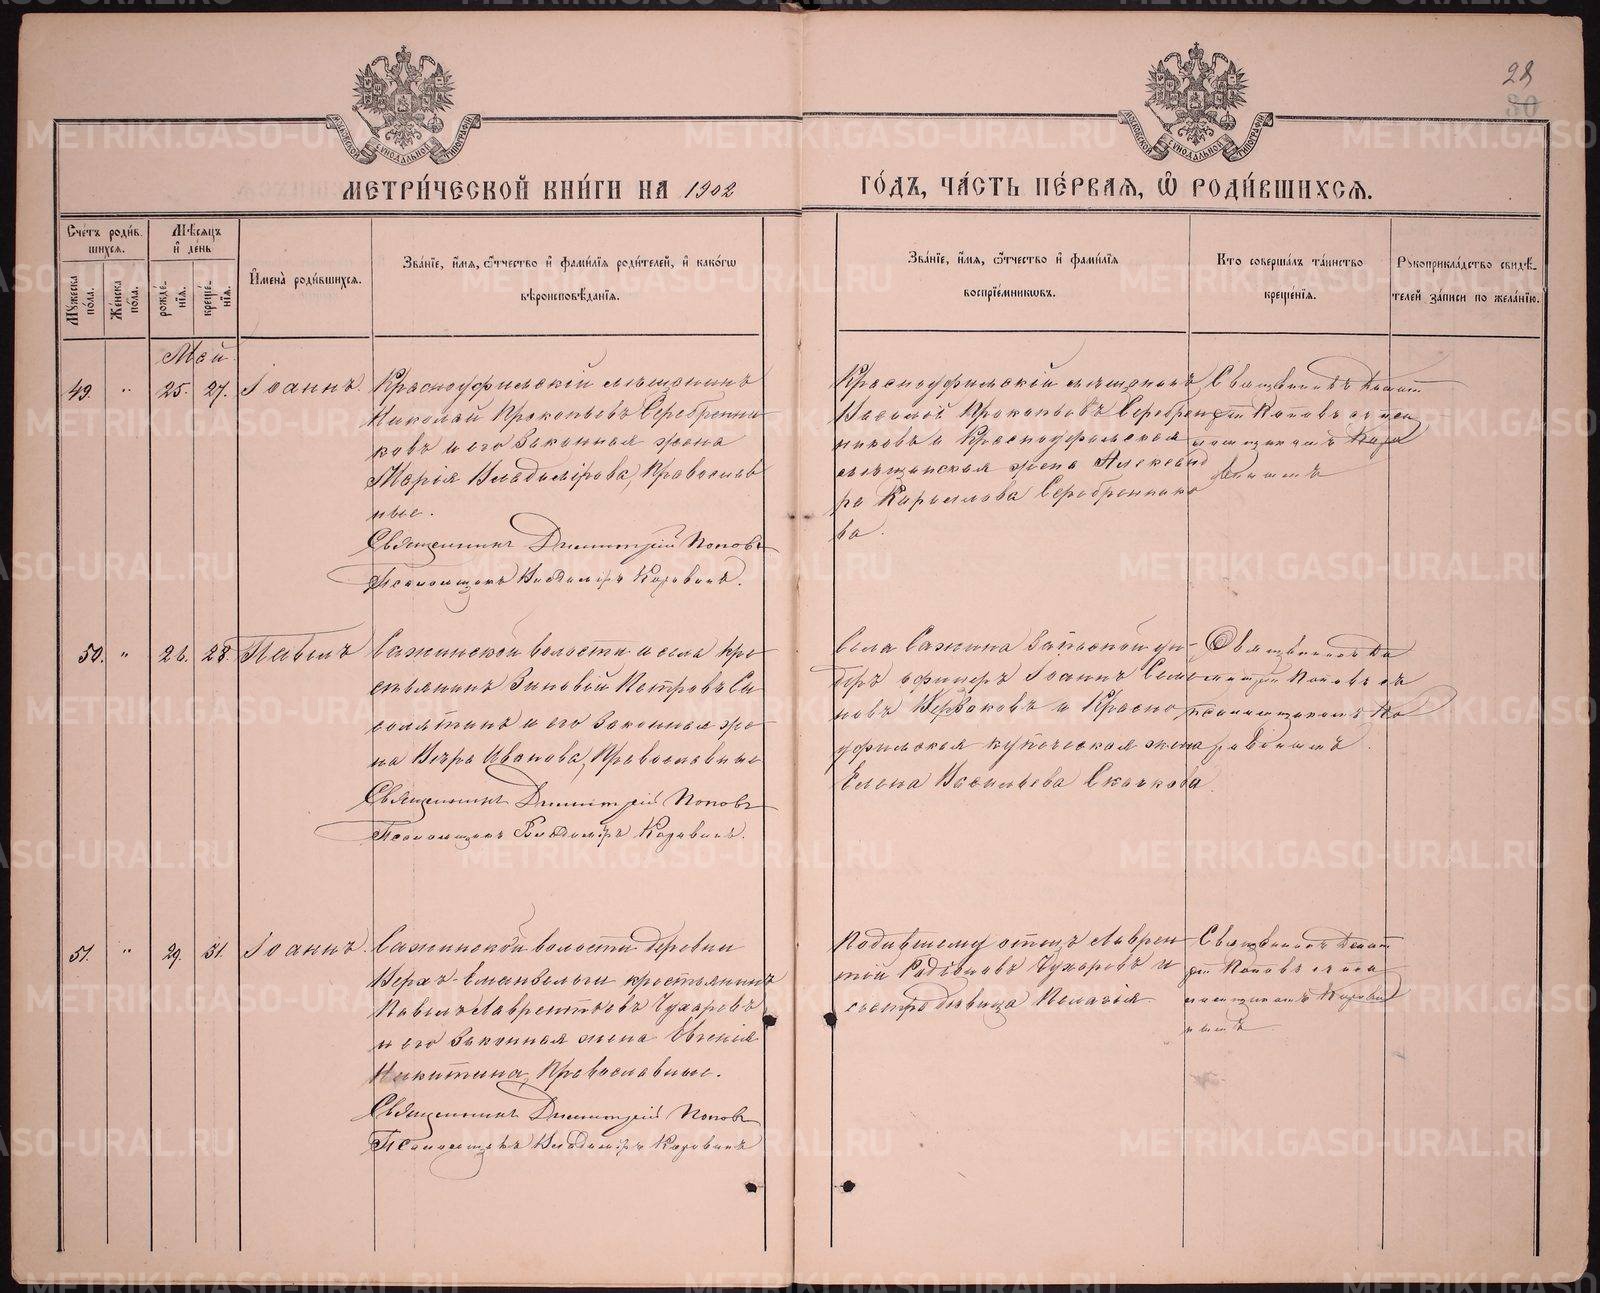 28
30
МОСКОВСКОЙ СѴНОДАЛЬНОЙ ТИПОГРАФІИ
МОСКОВСКОЙ СѴНОДАЛЬНОЙ ТИПОГРАФІИ
МЕТРИ́ЧЕСКОЙ КНИ́ГИ НА 1902
ГО́ДЪ, ЧА́СТЬ ПЕ́РВАЯ, Ѿ РОДИ́ВШИХСЯ.
Сче́тъ роди́в
шихся.
Мѣсяцъ
и де́нь
Му́жеска
по́ла.
Же́нска
по́ла.
рожде́-
нія.
креще́-
нія.
Имена̀ роди́вшихся.
Зва́ніе, и́мя, ѻ́тчество и фами́лія роди́телей, и како́гѡ
вѣроисповѣ́данія.
Зва́ніе, и́мя, ѻ́тчество и фами́лія
воспріе́мниковъ.
Кто соверша́лъ та́инство
креще́нія.
Рукоприкла́дство свидѣ́-
телей за́писи по жела́нію.
Май
49. " 25. 27. Іоаннъ.
Красноуфимскій мѣщанинъ
Николай Прокопьевъ Серебренни
ковъ и его законная жена
Марія Владимірова, Православ
ные.
Священникъ Димитрій Поповъ
Псаломщикъ Владиміръ Коровинъ.
Красноуфимскій мѣщанинъ
Василій Прокопьевъ Серебрен
никовъ и Красноуфимская
мѣщанская жена Александ
ра Кириллова Серебреннико
ва.
Священникъ Димит
рій Поповъ съ пса
ломщикомъ Коро
винымъ
50. " 26. 28. Павелъ
Сажинской волости и села кре
стьянинъ Зиновій Петровъ Си
и его законная же
на Вѣра Иванова, Православные
Священникъ Димитрій Поповъ
Псаломщикъ Владиміръ Коровинъ.
Села Сажина Запасной ун-
деръ офицеръ Іоаннъ Семе
новъ и Красно
уфимская купеческая жена
Елена Васильева Скачкова.
Священникъ Ди
митрій Поповъ съ
псаломщикомъ Ко
ровинымъ.
51. " 29. 31. Іоаннъ.
Сажинской волости деревни
крестьянинъ
Павелъ Лаврентьевъ Чухаревъ
и его законная жена Евгенія
Никитина, Православные.
Священникъ Димитрій Поповъ
Псаломщикъ Владиміръ Коровинъ
Родившему отецъ Лаврен
тій Родіоновъ Чухаревъ и
сестра дѣвица Пелагія
Священникъ Димит
рій Поповъ съ пса
ломщикомъ Корови
нымъ
METRIKI.GASO-URAL.RU